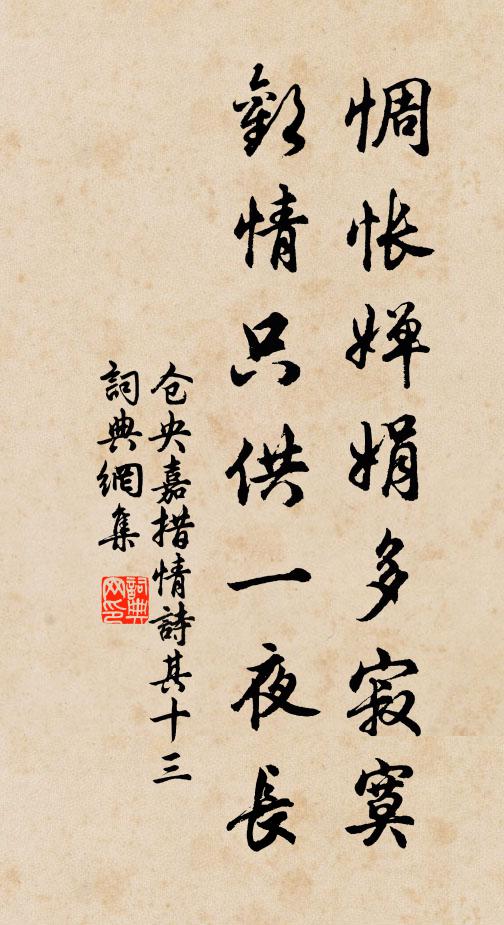 惆怅婵娟多寂寞
歡情只供一夜長
仓央嘉措情詩其十三
詞典網集
詞典网印